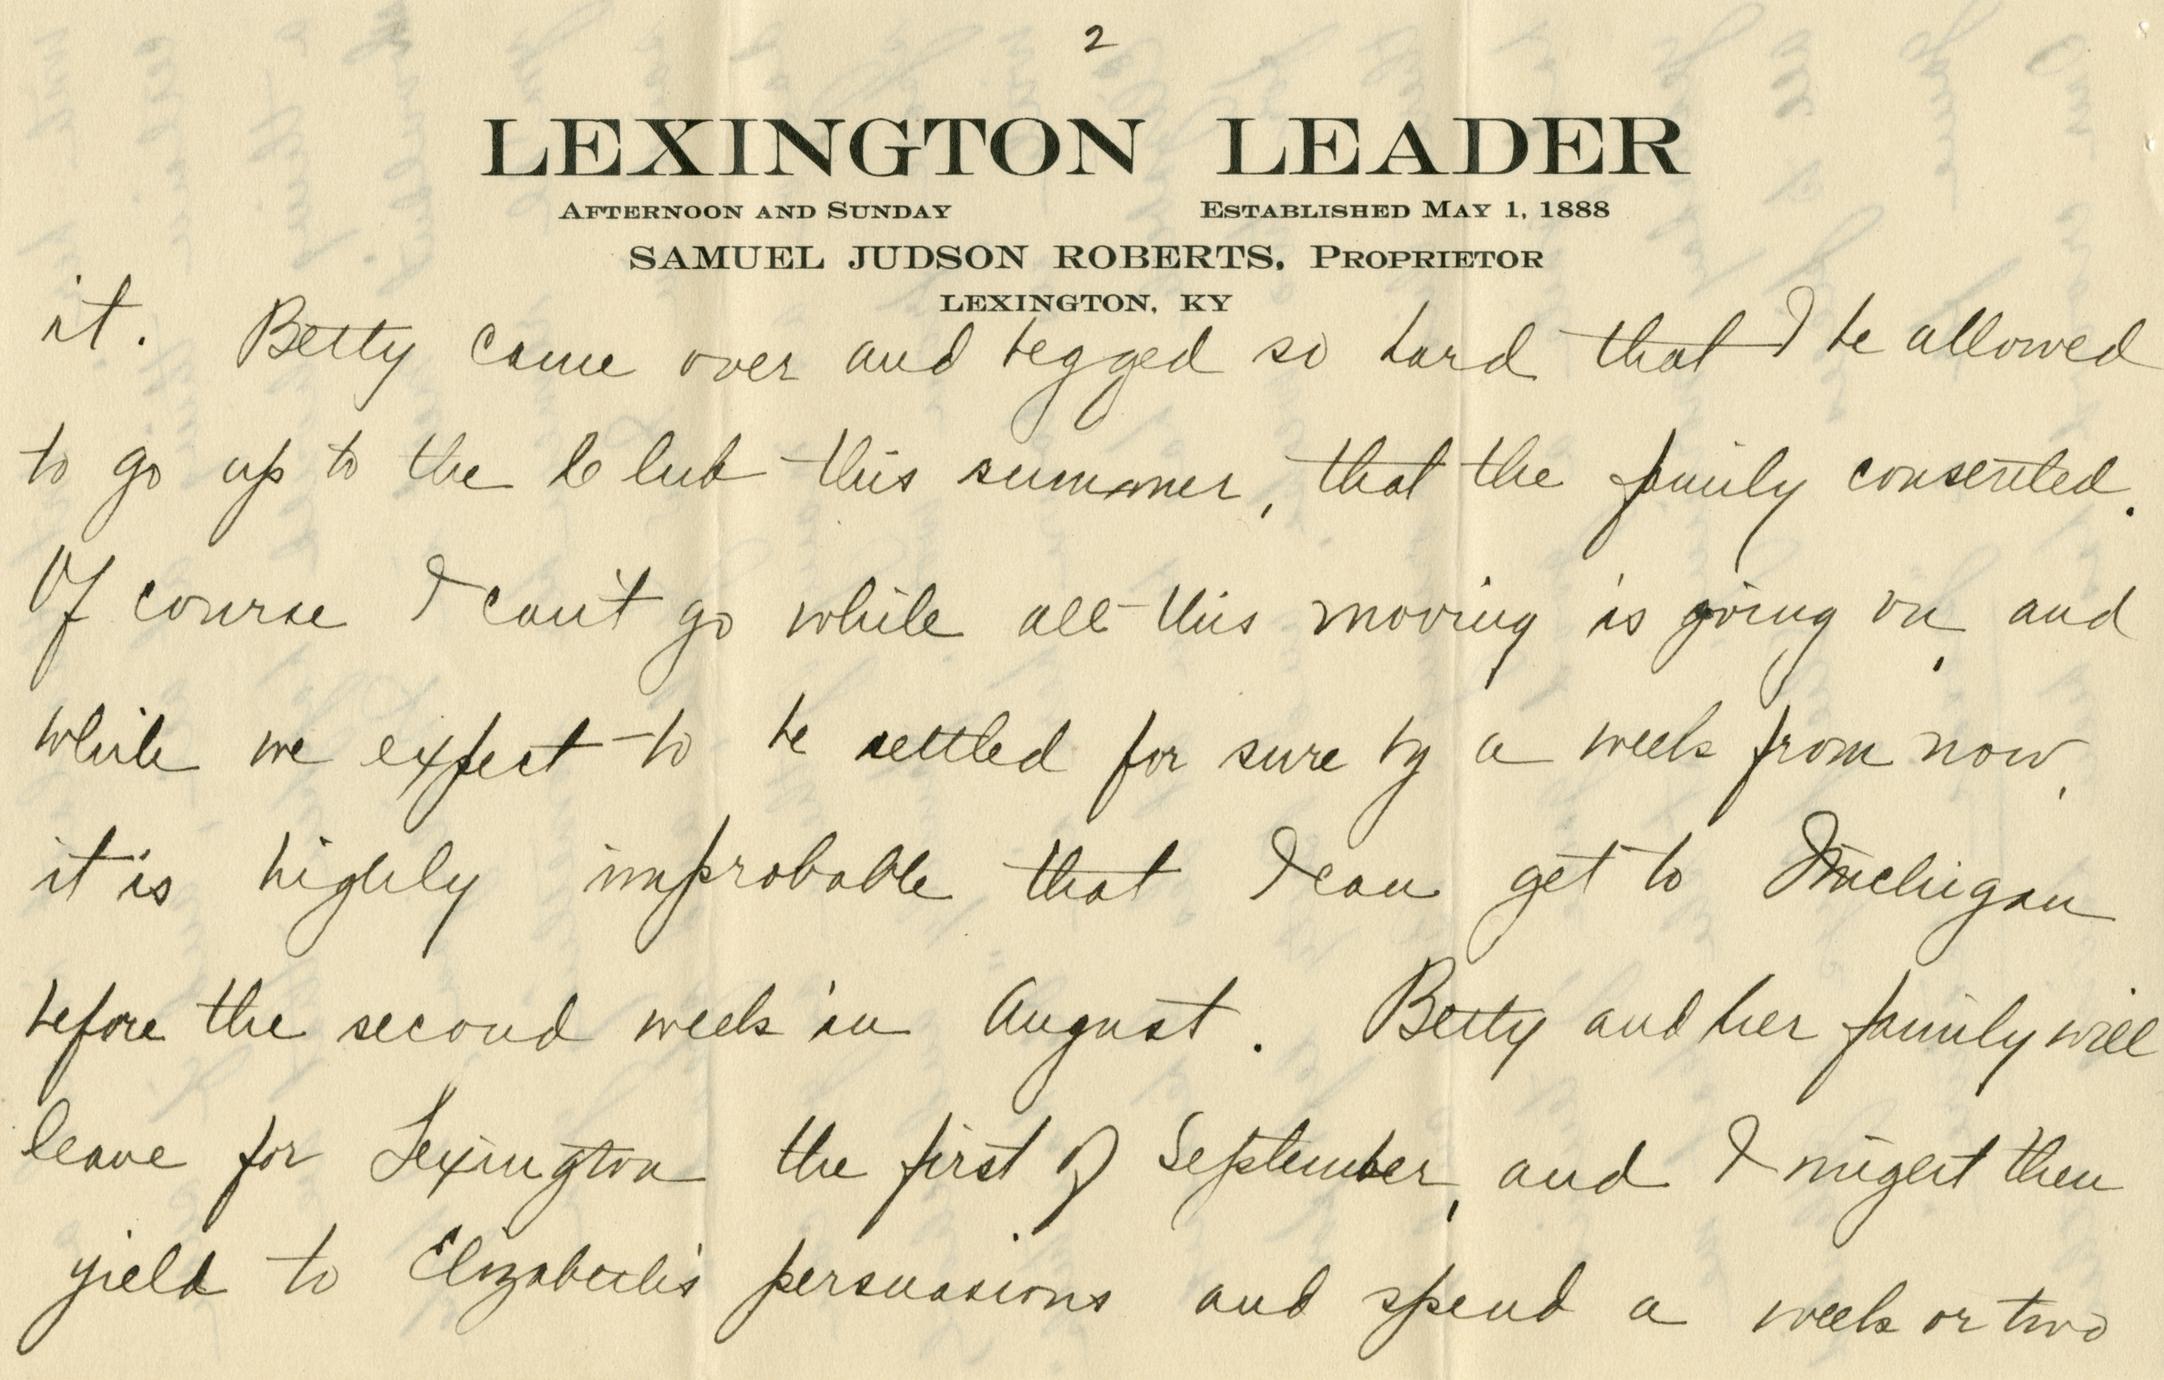 2
LEXINGTON LEADER
AFTERNOON AND SUNDAY ESTABLISHED MAY 1, 1888
SAMUEL JUDSON ROBERTS, PROPRIETOR
LEXINGTON, KY
it. Betty came over and begged so hard that I be allowed
to go up to the Club this summer, that the family consented.
Of course I can't go while all this moving is going on, and
while we expect to be settled for sure by a week from now,
it is highly improbable that I can get to Michigan
before the second week in August. Betty and her family will
leave for Lexington the first of September, and I might then
yield to Elizabeth's persuasions and spend a week or two